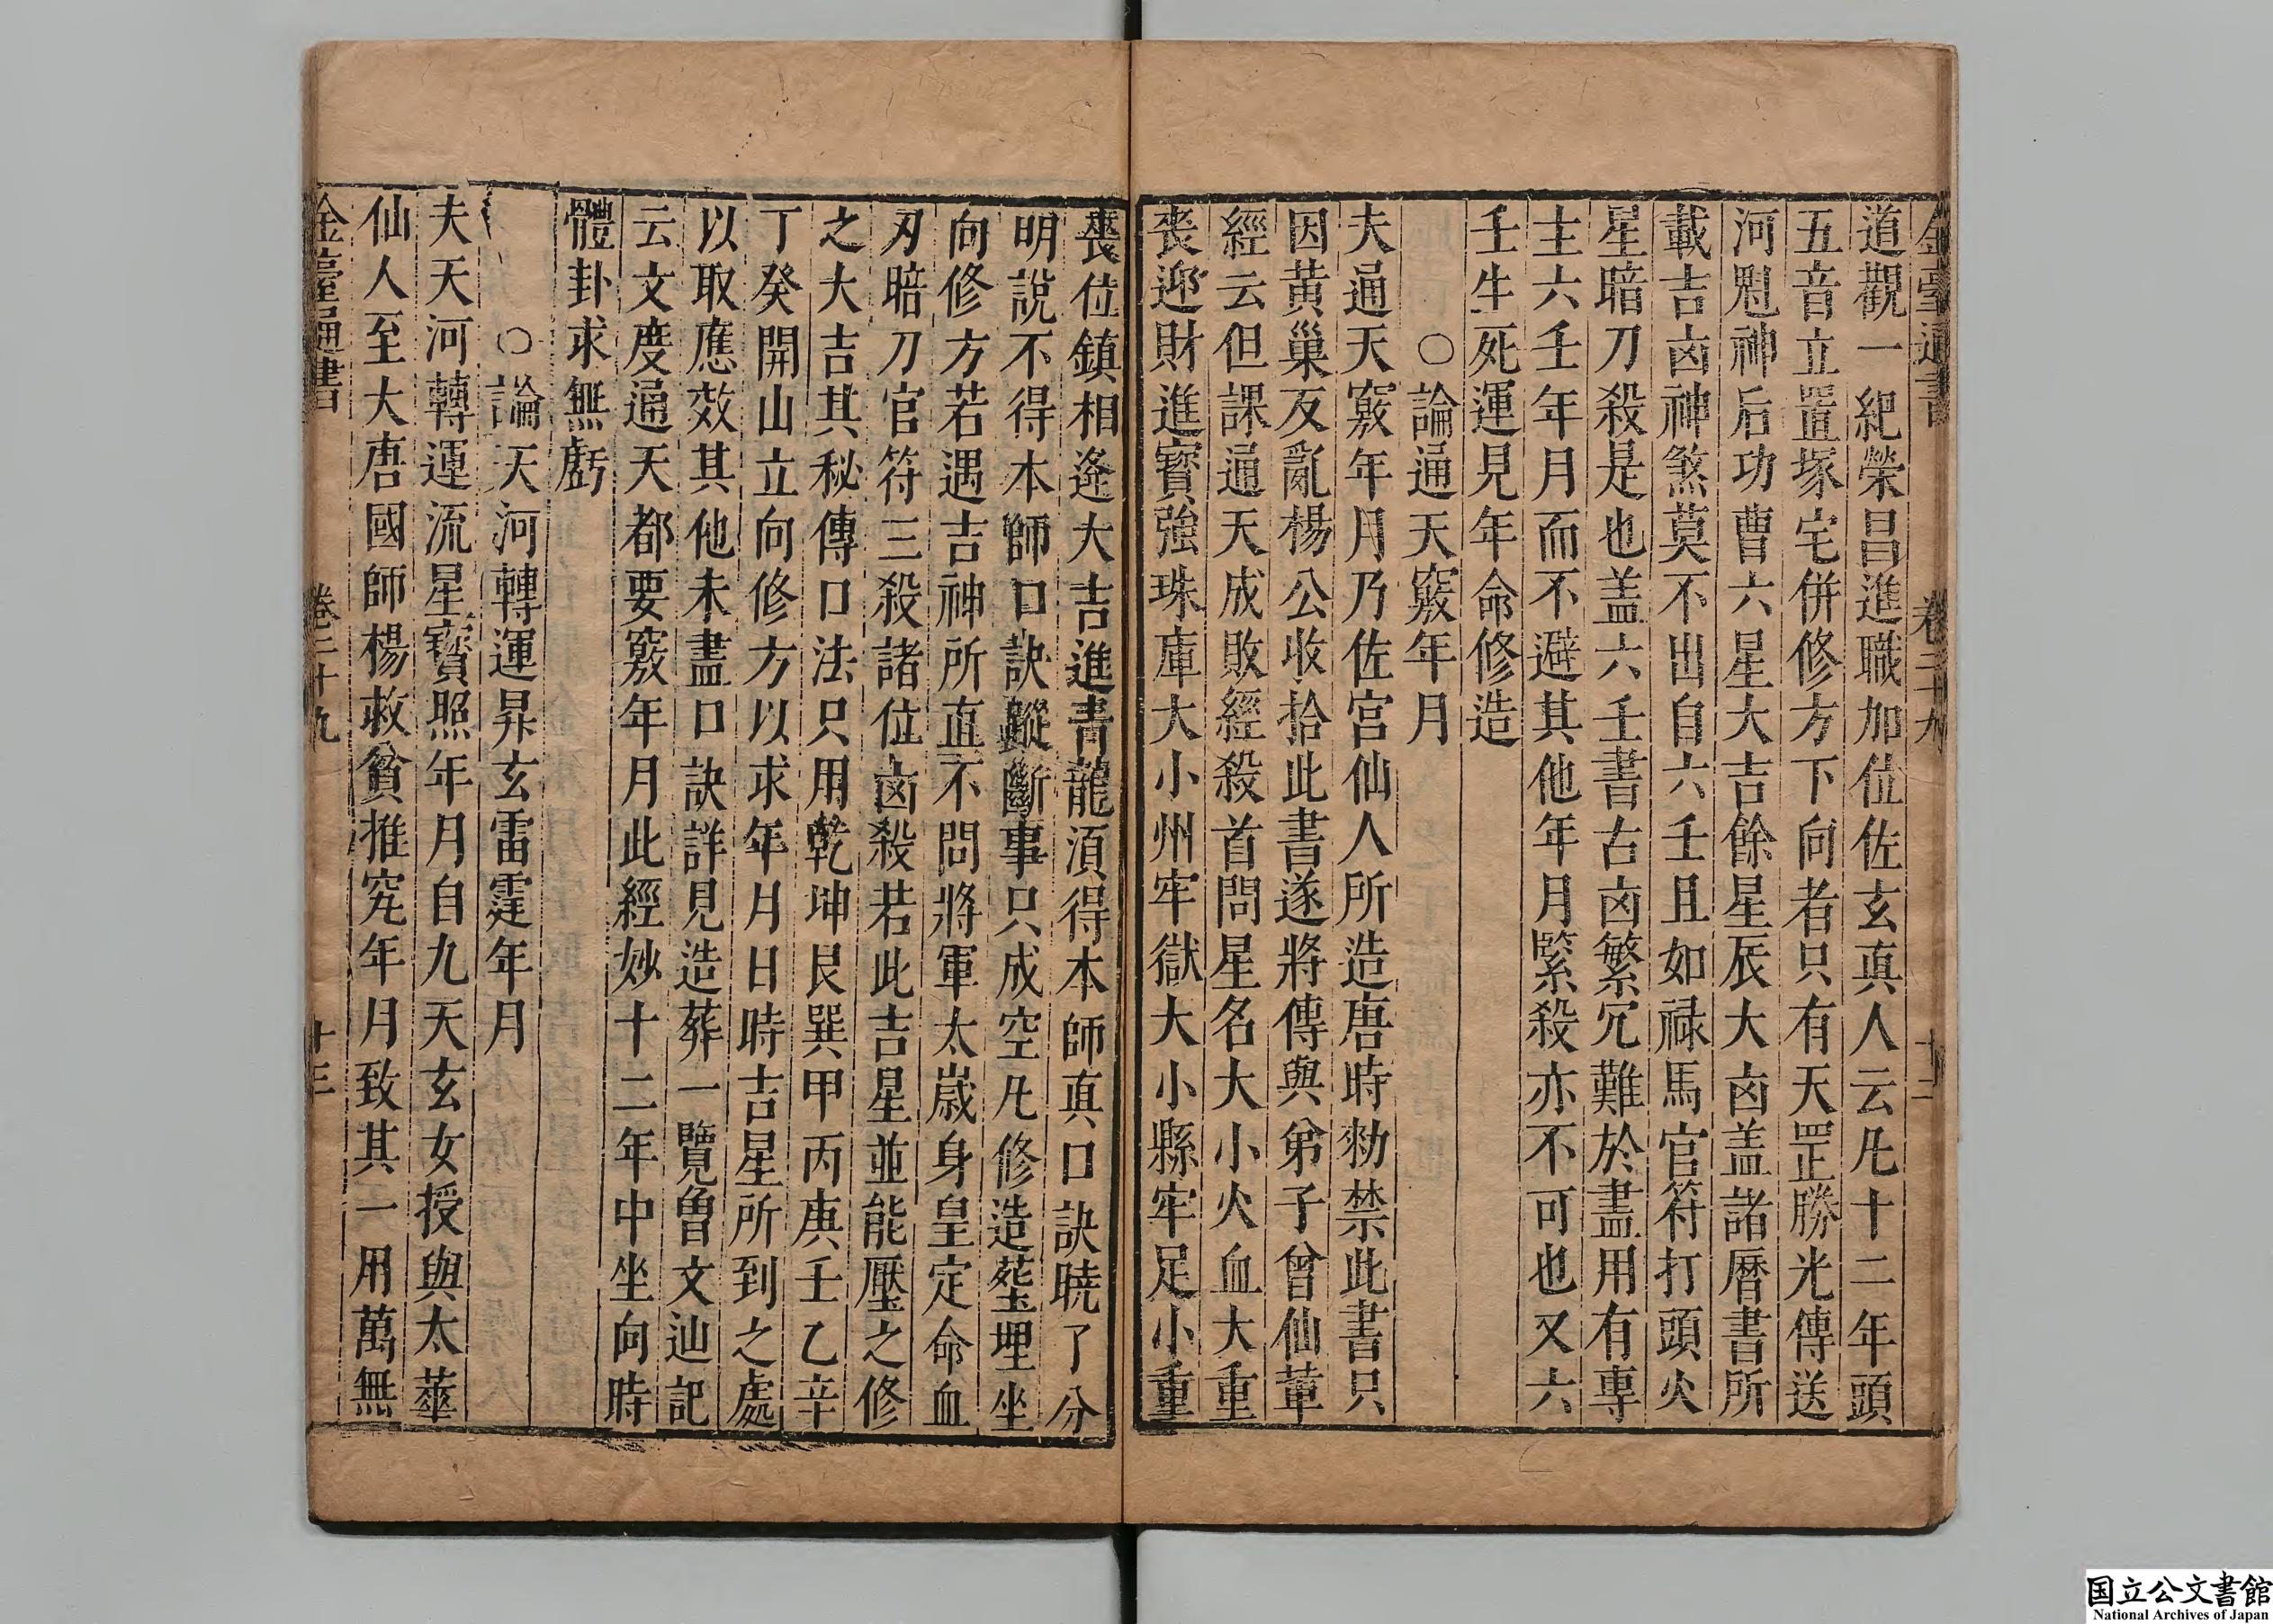 金臺通書 卷二十九 十二
道觀一紀榮昌進職加位佐玄真人云凡十二年頭
五音立置塚宅併修方下向者只有天罡勝光傳送
河魁神后功曹六星大吉餘星辰大凶盖諸曆書所
載吉凶神煞莫不出自六壬且如禄馬官符打頭火
星暗刀殺是也盖六壬書古凶繁冗難於盡用有專
主六壬年月而不避其他年月緊殺亦不可也又六
壬生死運見年命修造
○論通天竅年月
夫通天竅年月乃佐宫仙人所造唐時勑禁此書只
因黄巢反亂楊公收拾此書遂將傳與弟子曾仙葷
經云但課通天成敗經殺首問星名大小火血大重
丧迎財進寳強珠庫大小州牢獄大小縣牢足小重
䘮位鎮相逢大吉進青龍湏得本師真口訣曉了分
明說不得本師口訣蹤斷事只成空凡修造塟埋坐
向修方若遇吉神所直不問將軍太嵗身皇定命血
刃暗刀官符三殺諸位凶殺若此吉星並能壓之修
之大吉其秘傳口法只用乾坤艮巽甲丙庚壬乙辛
丁癸開山立向修方以求年月日時吉星所到之處
以取應效其他未盡口訣詳見造葬一覽曾文辿記
云文度通天都要竅年月此經妙十二年中坐向時
體卦求無虧
○論天河轉運昇玄雷霆年月
夫天河轉運流星寳照年月自九天玄女授與太華
仙人至大唐國師楊救貧推究年月致其一用萬無
金臺通書 卷二十九 十三
国立公文書館
National Archives of Japan